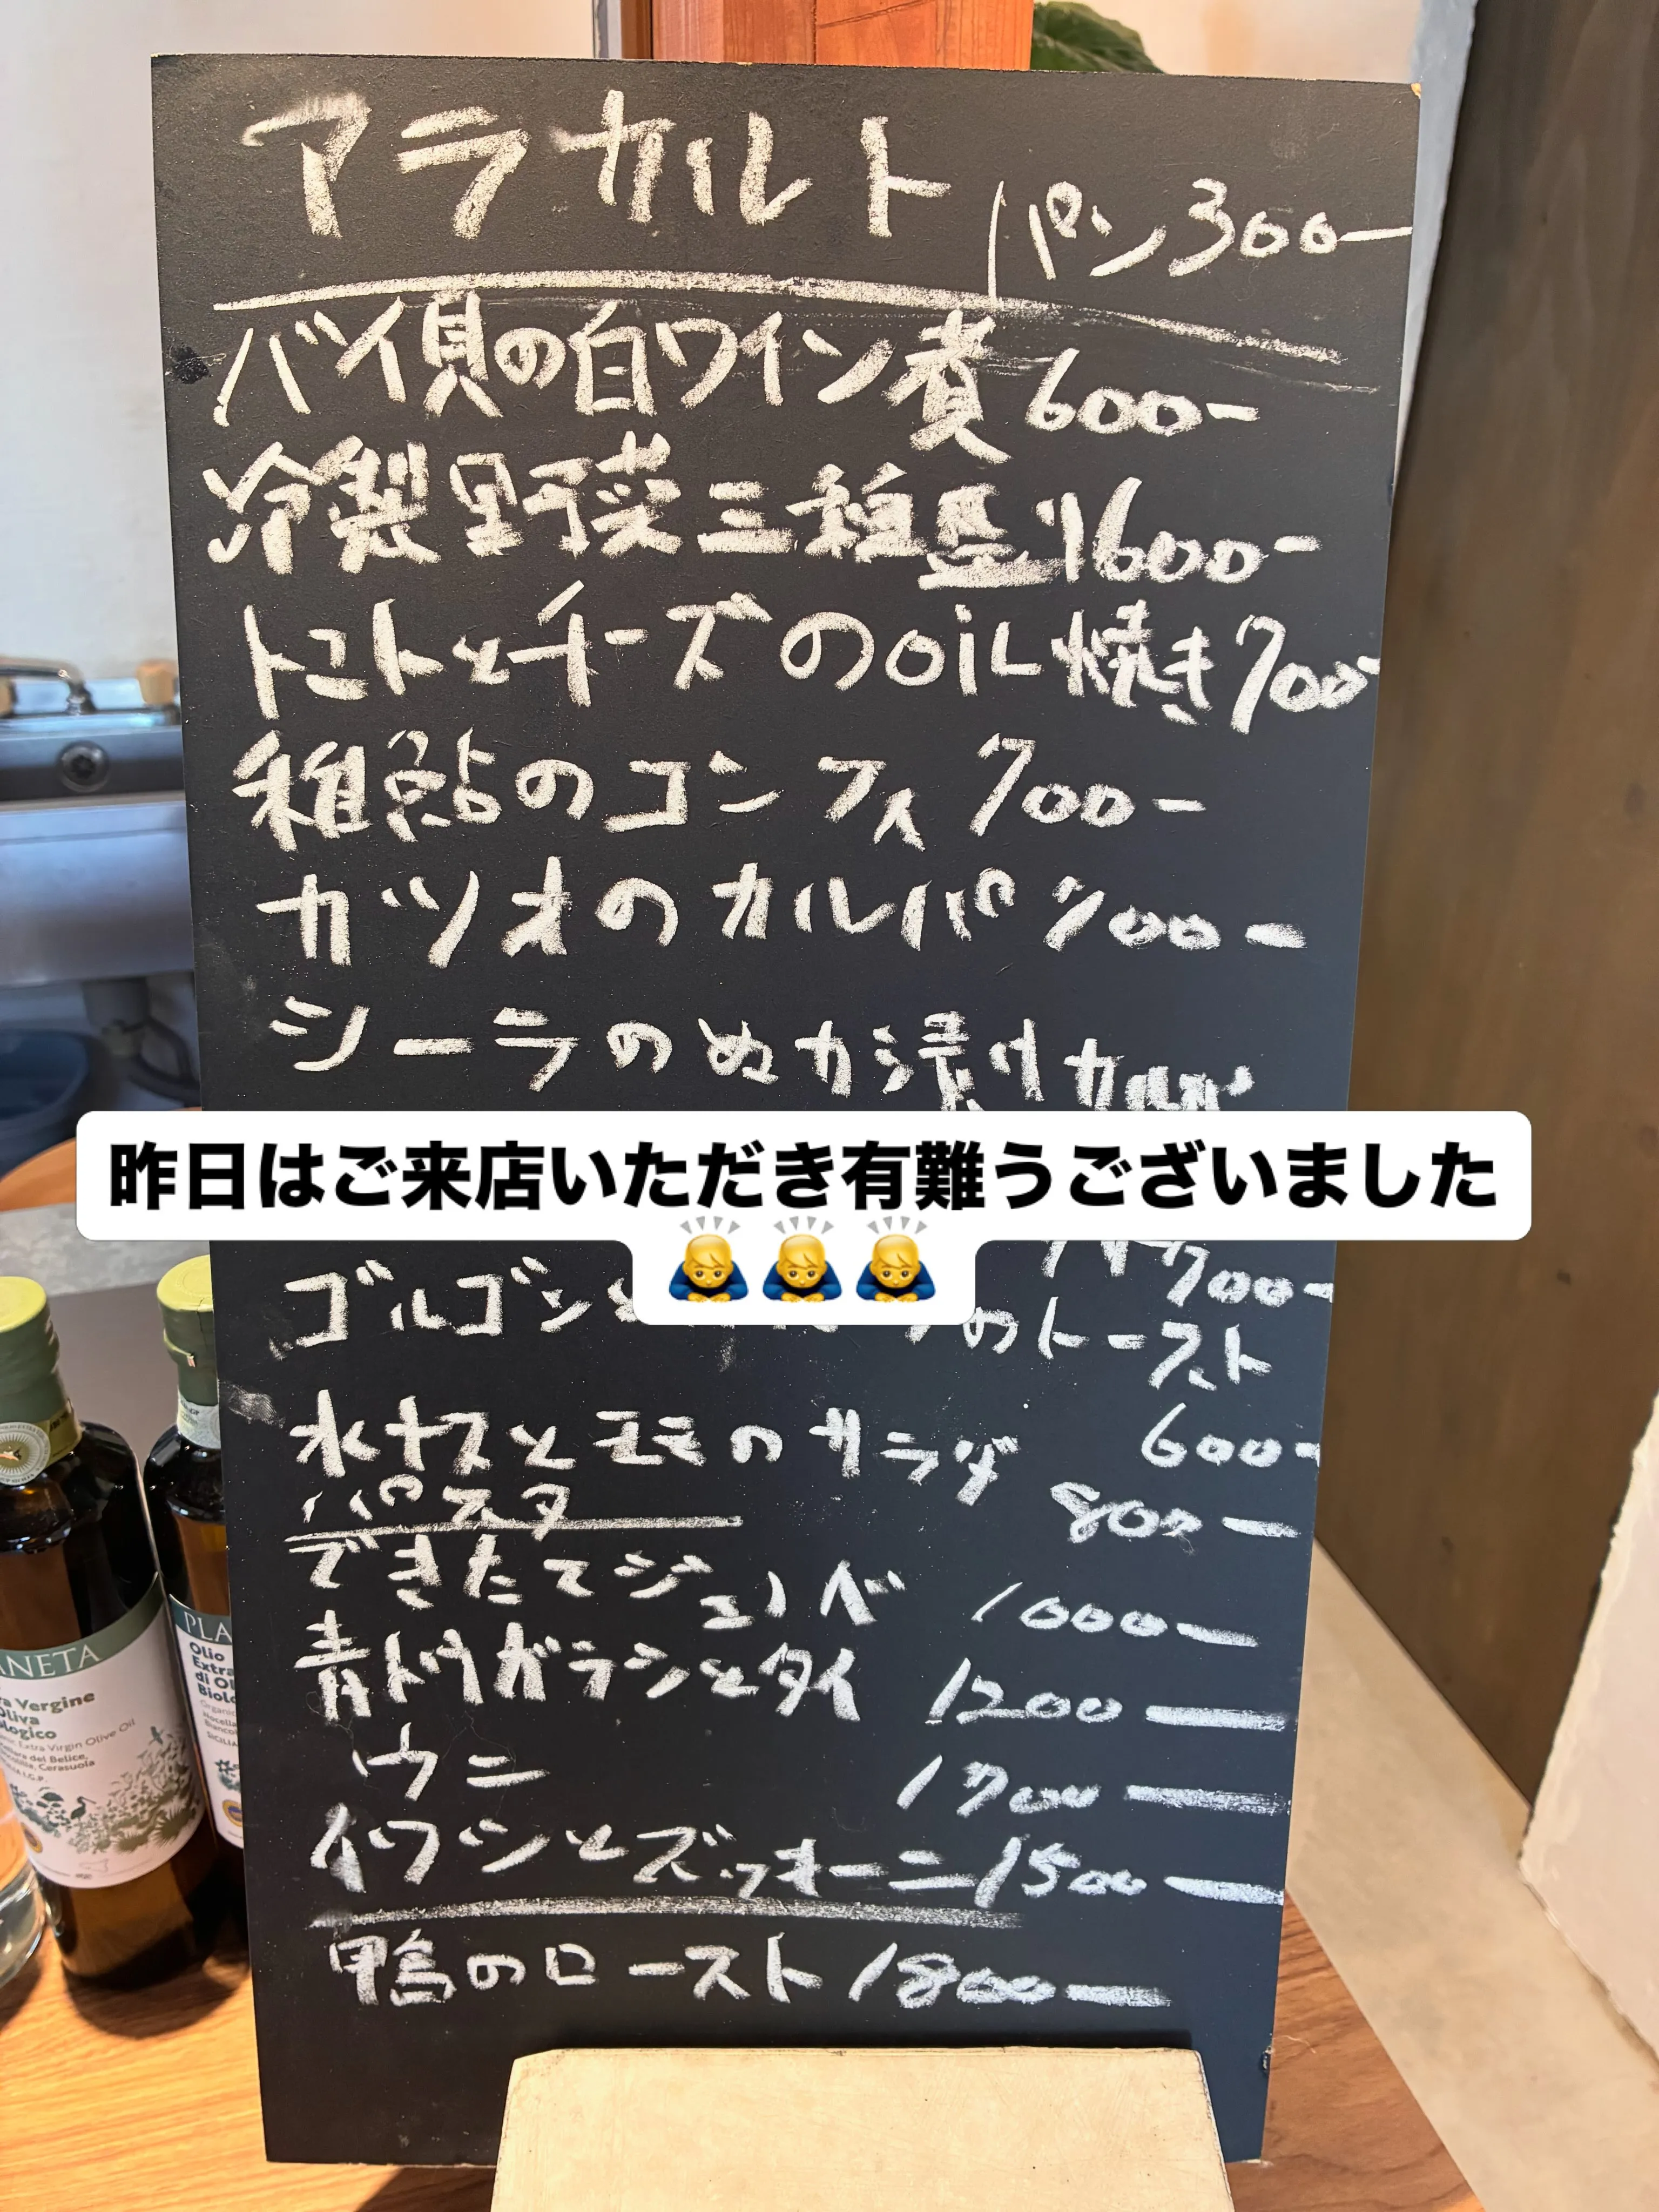 アラカルト パン300-
バイ貝の白ワイン煮 600-
冷製野菜三種盛り 600-
トマトとチーズのoil焼き 700-
稚鮎のコンフィ 700-
カツオのカルパ 700-
シーラのぬか漬けカルパ
昨日はご来店いただき有難うございました
🙇🙇🙇
700-
ゴルゴンと のトースト
600-
水ナスとモモのサラダ 800-
パスタ
できたてジェノベ 1000-
青トウガラシとタイ 1200-
ウニ 1700-
イワシとズッキーニ 1500-
鴨のロースト 1800-
PLANETA
PLA
Vergine
Oliva
Biologico
Extra Virgin Olive Oil
del Belice,
Cerasuola
Olio
Extra
di Ol
Biolo